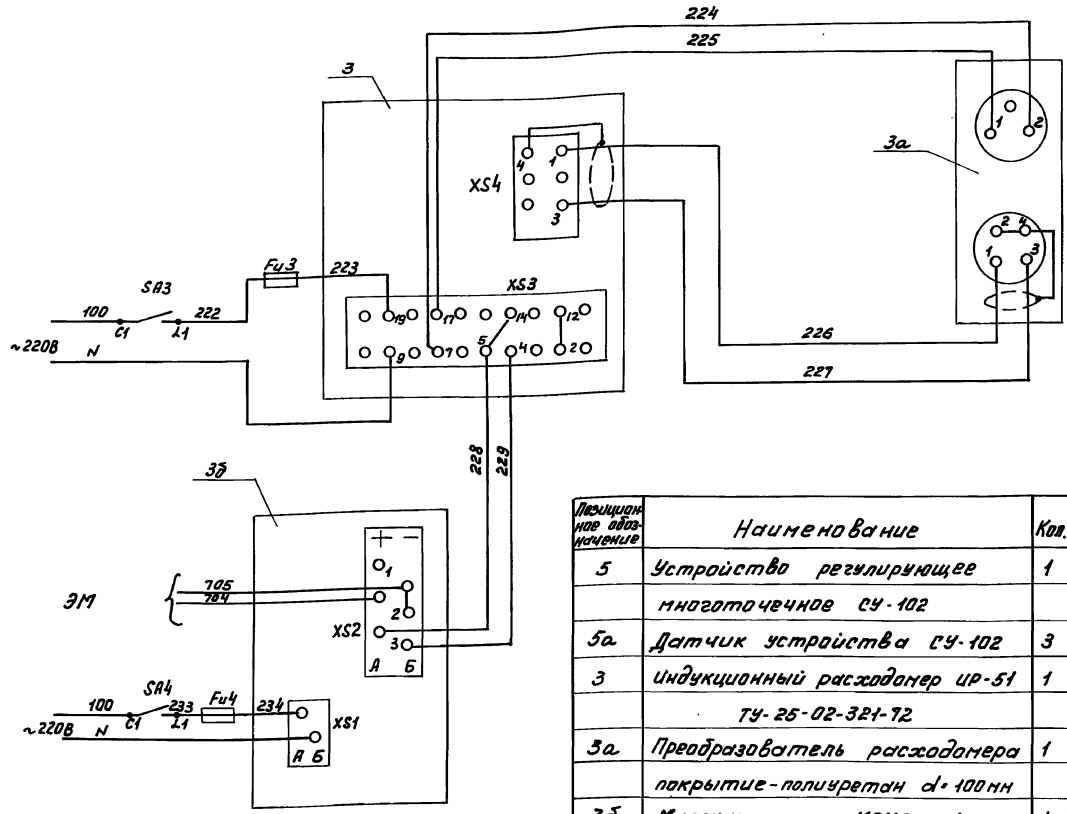 224
225
3
3а
1
2
4
1
XS4
3
2
4
1
3
Fu3
223
XS3
SA3
100
222
C1
L1
19
17
14
12
~220В
N
9
7
5
4
2
226
227
228
229
3б
+ -
1
705
704
ЭМ
2
XS2
3
А Б
SA4
Fu4
100
C1
233
L1
234
XS1
~220В
N
А Б
Позицион-
ное обоз-
начение
Наименование
Кол.
5
Устройство регулирующее
1
многоточечное СУ-102
5а
Датчик устройства СУ-102
3
3
Индукционный расходомер ИР-51
1
ТУ-25-02-321-72
3а
Преобразователь расходомера
1
покрытие-полиуретан d=100мм
3б